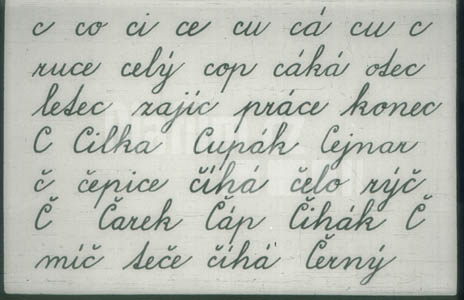 c co ci ce cu cá cu c
ruce celý cop cáká otec
letec zajíc práce konec
C Cilka Cupák Cejnar
č čepice číhá čelo rýč
Č Čarek Čáp Čihák Č
míč teče číhá Černý